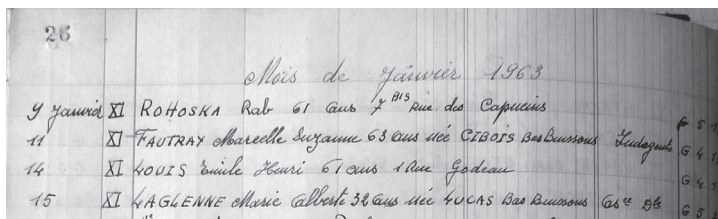 26
Mois de Janvier 1963
9 Janvier XI ROHOSKA Rab 61 ans 7 BIS Rue des Capucins G 5 1
11 XI FAUTRAY Marcelle Suzanne 63 ans née CIBOIS Bas Buissons Indigente G 4 1
14 XI LOUIS Emile Henri 61 ans 1 Rue Godeau G 4 1
15 XI LAGLENNE Marie Alberte 32 ans née LUCAS Bas Buissons G 5